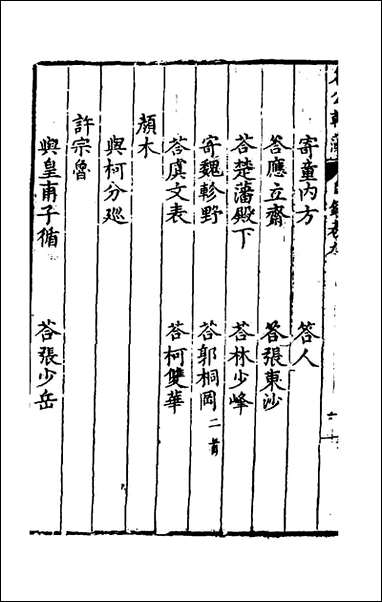 寄童内方　答人
答應立齋　答張東沙
答楚藩殿下　答林少峰
寄魏軫野　答郭桐岡二首
答虞文表　答柯雙華
顏木
與柯分巡
許宗魯
與皇甫子循　答張少岳